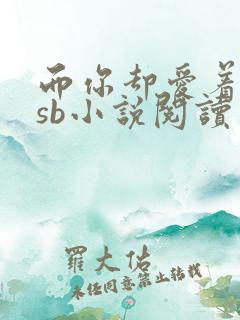 而你却爱着
sb小說閱讀
羅大佑
未经同意禁止转载